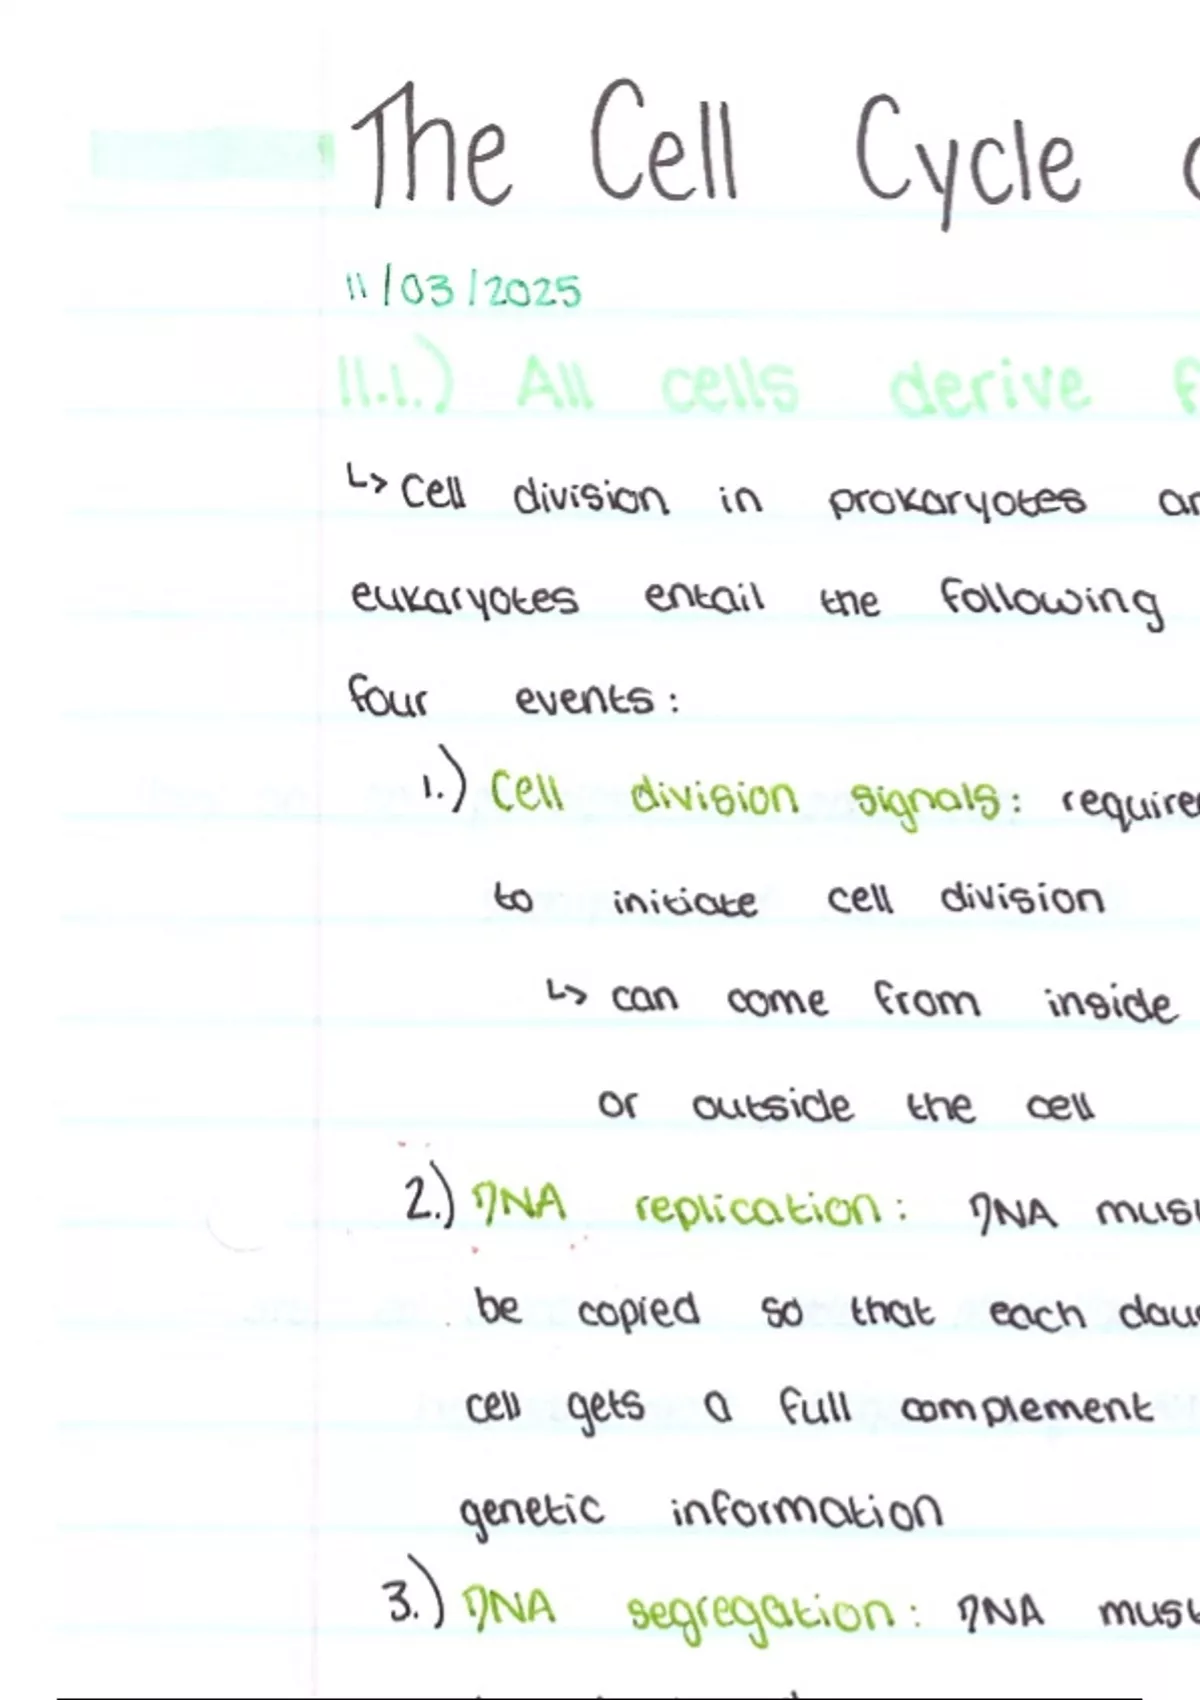 The Cell Cycle
11/03/2025
11.1.) All cells derive
↳ Cell division in prokaryotes
eukaryotes entail the following
four events:
1.) Cell division signals:
to initiate cell division
↳ can come from inside
or outside the cell
2.) DNA replication: DNA
be copied so that each
cell gets a full complement
genetic information
3.) DNA segregation: DNA